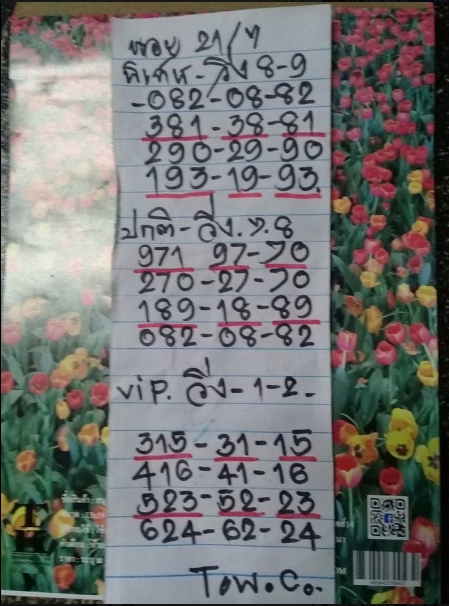 หวย 21/7
พิเศษ-วิ่ง 8-9
-082-08-82
381-38-81
290-29-90
193-19-93.
ปกติ-วิ่ง.7.8
971 97-70
270-27-70
189-18-89
082-08-82
vip. วิ่ง-1-2-
315-31-15
416-41-16
523-52-23
624-62-24
T.W.C..